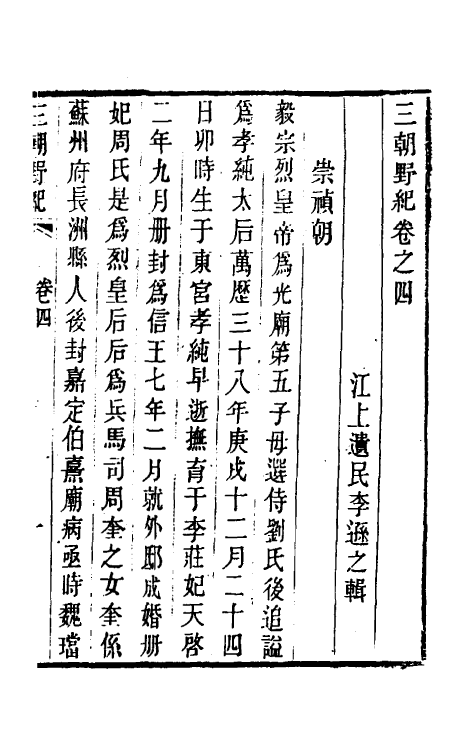 三朝野紀卷之四
江上遺民李遜之輯
崇禎朝
毅宗烈皇帝爲光廟第五子母選侍劉氏後追諡
爲孝純太后萬歷三十八年庚戌十二月二十四
日卯時生于東宮孝純早逝撫育于李莊妃天啓
二年九月册封爲信王七年二月就外邸成婚册
妃周氏是爲烈皇后后爲兵馬司周奎之女奎係
蘇州府長洲縣人後封嘉定伯熹廟病亟時魏璫
三朝野紀 卷四 一